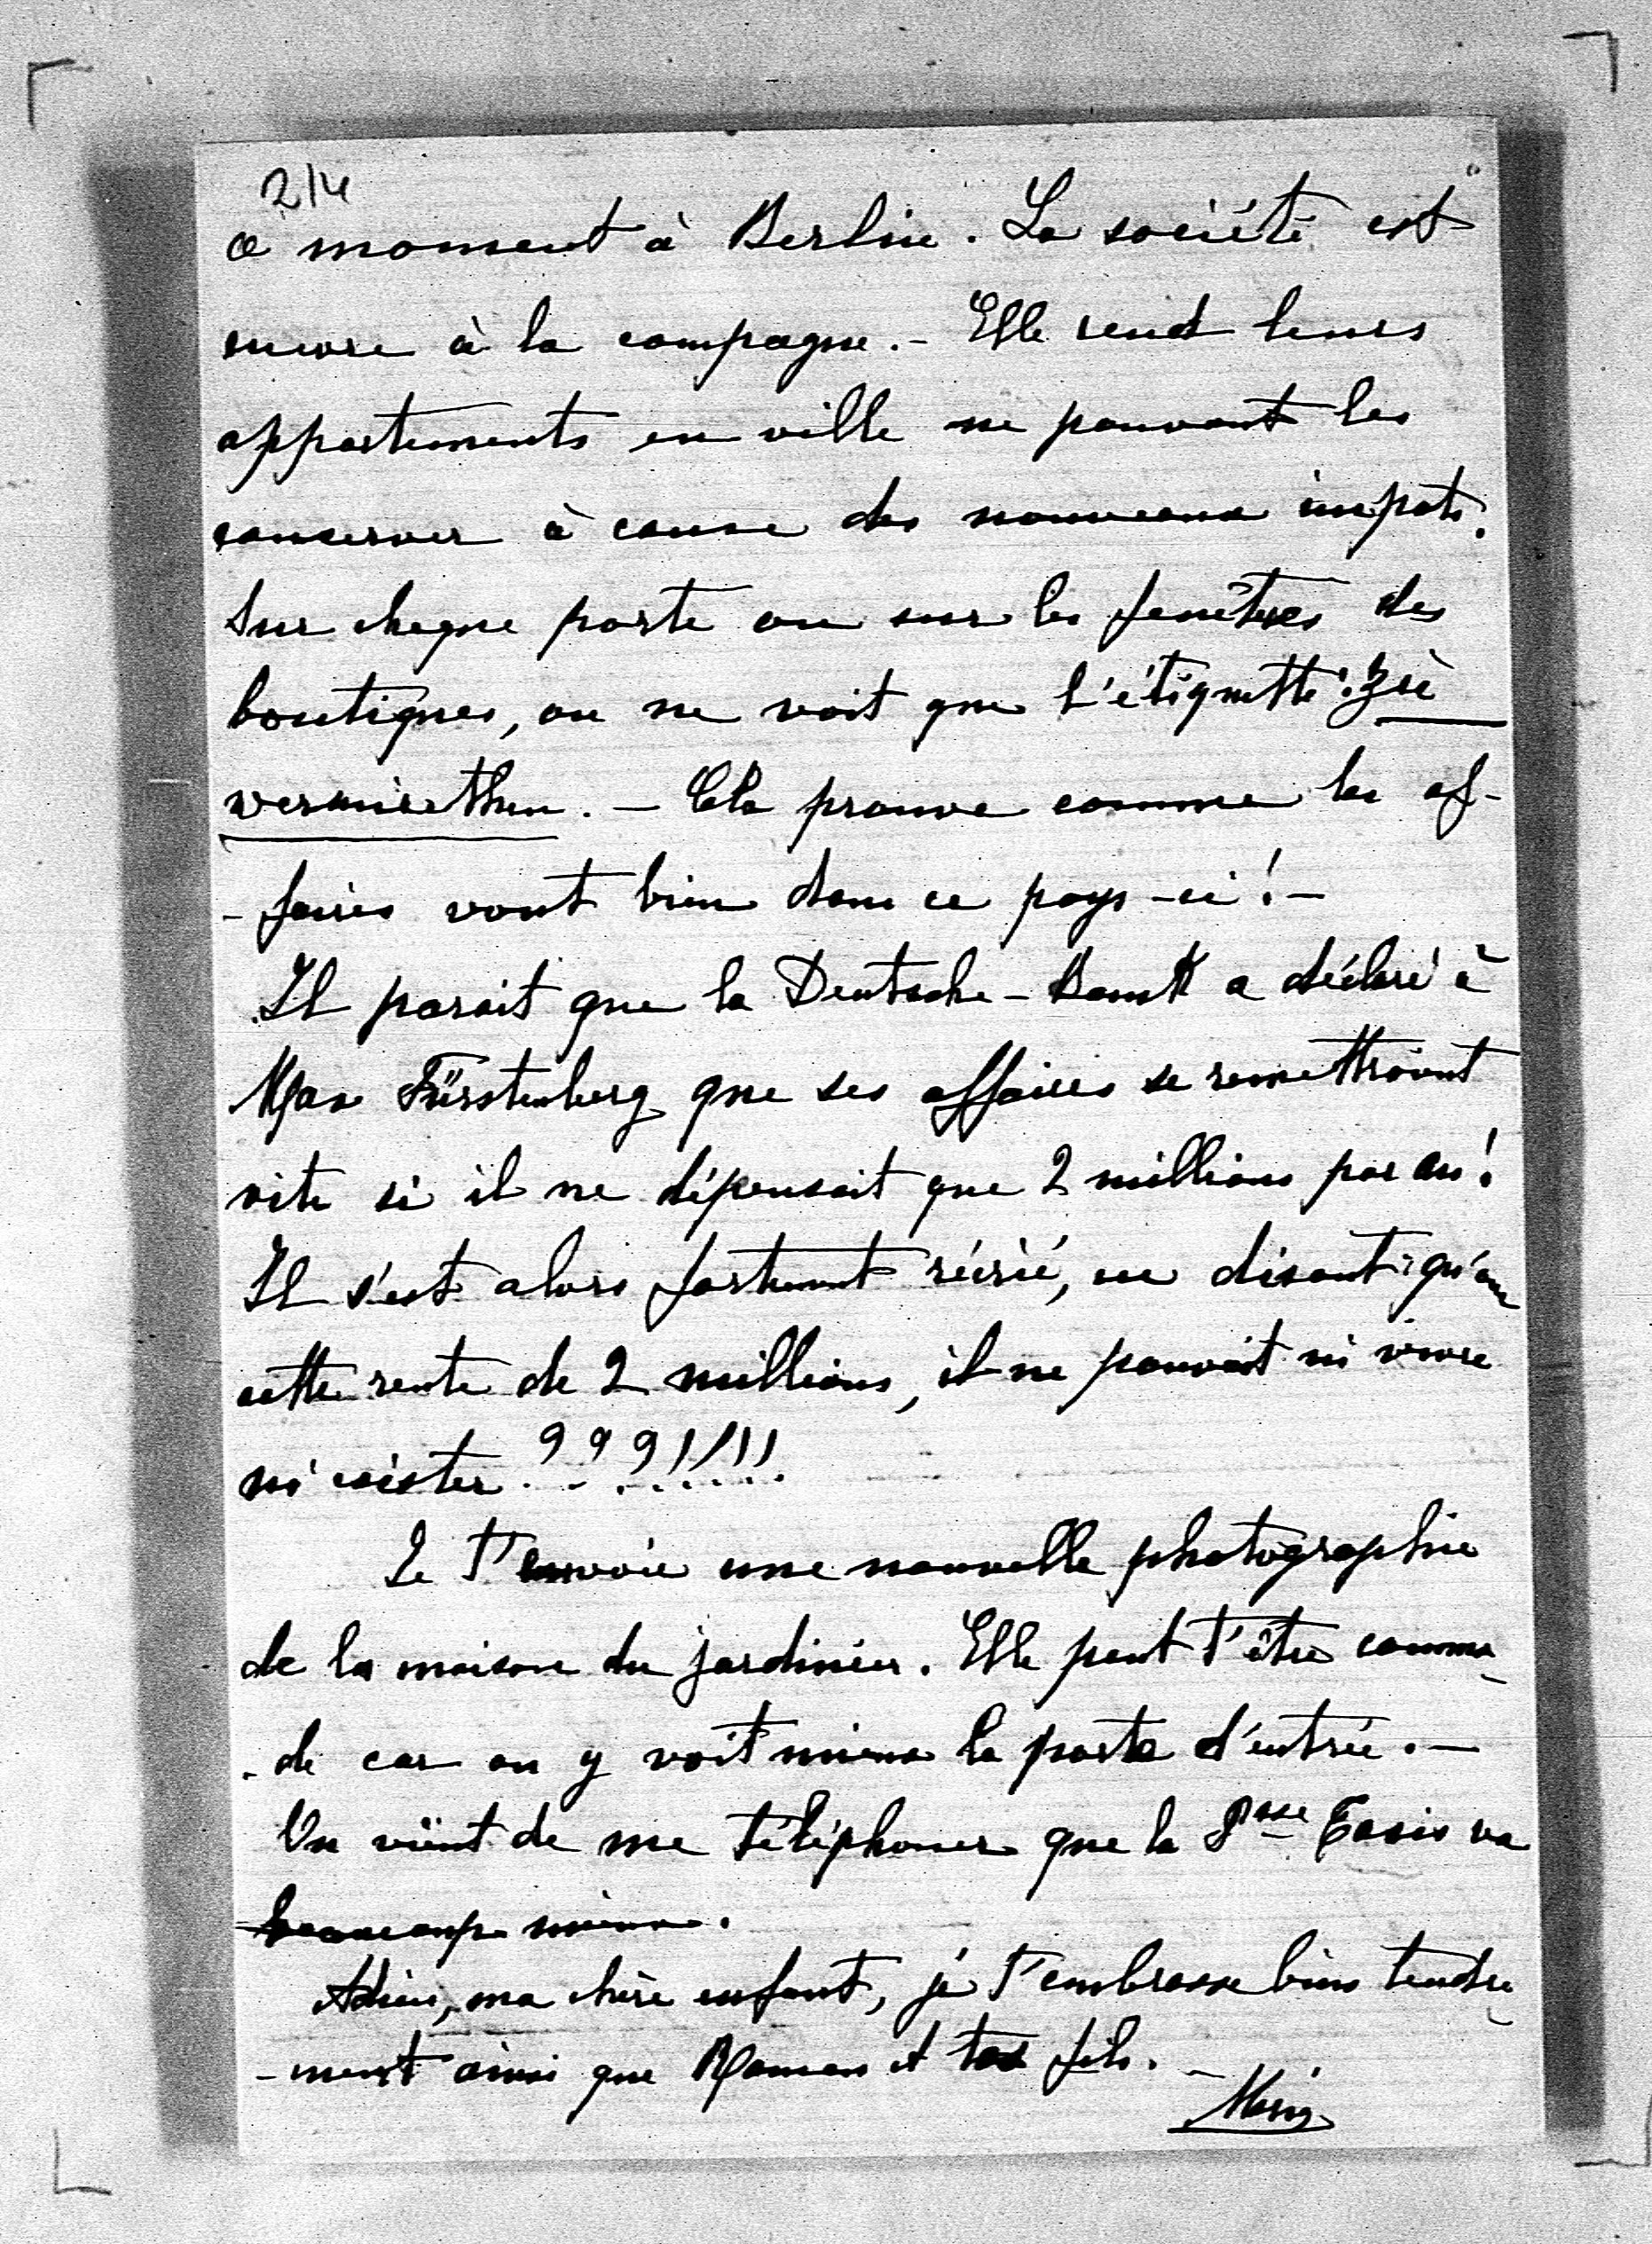 2/4
ce moment à Berlin. La société est
encore à la campagne. - Elle rend leurs
appartements en ville ne pouvant les
conserver à cause des nouveaux impots.
Sur chaque porte ou sur les fenêtres des
boutiques, on ne voit que l'étiquette: zu
vermiethen. - Cela prouve comme les af-
-faires vont bien dans ce pays-ci! -
Il parait que la Deutsche-Bank a déclaré à
Max Fürstenberg que ses affaires se remettraient
vite si il ne dépensait que 2 millions par an!
Il s'est alors fortement récrié, en disant: qu'au
cette rente de 2 millions, il ne pouvait ni vivre
ni exister???!!!!
Je t'envoie une nouvelle photographie
de la maison du jardinier. Elle peut t'être commo-
-de car on y voit mieux la porte d'entrée. -
On vient de me téléphoner que la Psse Taxis va
beaucoup mieux.
Adieu, ma chère enfant, je t'embrasse bien tendre-
-ment ainsi que Roman et tes fils. -
Marie